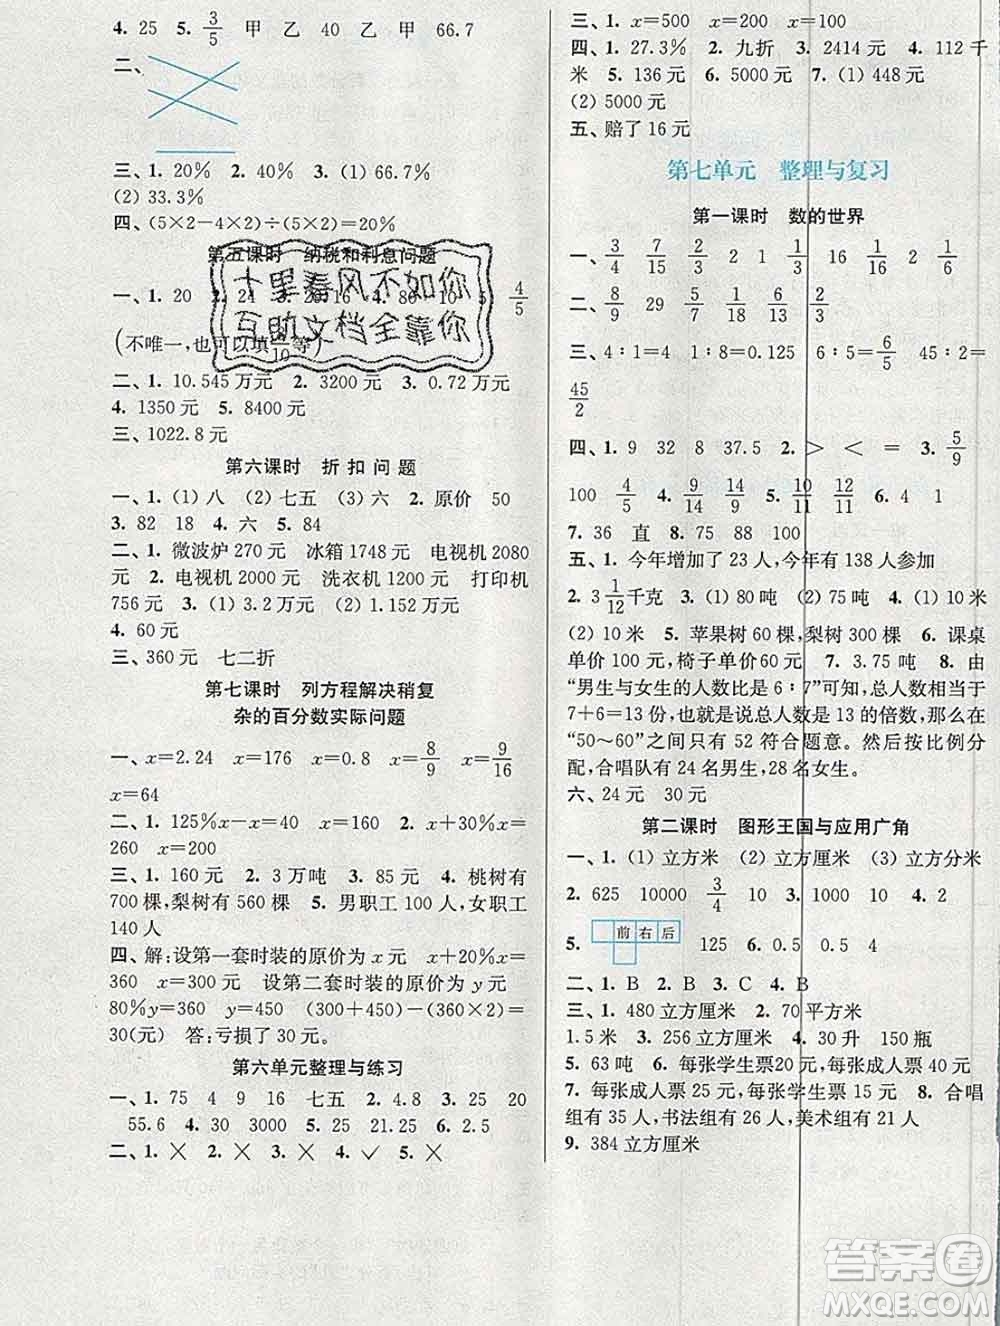 4. 25 5. 3/5 甲 乙 40 乙 甲 66.7
二、
三、1. 20% 2. 40% 3. (1) 66.7%
(2) 33.3%
四、(5×2-4×2)÷(5×2)=20%
第五课时 纳税和利息问题
一、1. 20 2. 24 3. 20 16 4. 80 10 5. 4/5
(不唯一,也可以填 /10 等)
二、1. 10.545 万元 2. 3200 元 3. 0.72 万元
4. 1350 元 5. 8400 元
三、1022.8 元
第六课时 折扣问题
一、1. (1) 八 (2) 七五 (3) 六 2. 原价 50
3. 82 18 4. 六 5. 84
二、1. 微波炉 270 元 冰箱 1748 元 电视机 2080
元 2. 电视机 2000 元 洗衣机 1200 元 打印机
756 元 3. (1) 3.2 万元 (2) 1.152 万元
4. 60 元
三、360 元 七二折
第七课时 列方程解决稍复
杂的百分数实际问题
一、x=2.24 x=176 x=0.8 x=8/9 x=9/16
x=64
二、1. 125%x-x=40 x=160 2. x+30%x=
260 x=200
三、1. 160 元 2. 3 万吨 3. 85 元 4. 桃树有
700 棵,梨树有 560 棵 5. 男职工 100 人,女职工
140 人
四、解:设第一套时装的原价为 x 元 x+20%x=
360 x=300 元 设第二套时装的原价为 y 元
80%y=360 y=450 (300+450)-(360×2)=
30(元) 答:亏损了 30 元.
第六单元整理与练习
一、1. 75 4 9 16 七五 2. 4.8 3. 25 20
55.6 4. 30 3000 5. 25 21.25 6. 2.5
二、1. × 2. × 3. × 4. ✓ 5. ×
三、1. x=500 x=200 x=100
四、1. 27.3% 2. 九折 3. 2414 元 4. 112 千
米 5. 136 元 6. 5000 元 7. (1) 448 元
(2) 5000 元
五、赔了 16 元
第七单元 整理与复习
第一课时 数的世界
一、3/4 7/15 2/3 2 1 1/3 16 1/16 2 1/9
二、8/9 29 5/7 1/4 6/7 2/3
三、4∶1=4 1∶8=0.125 6∶5=6/5 45∶2=
45/2
四、1. 9 32 8 37.5 2. > < = 3. 5/9
100 4/5 4. 9/14 9/14 5. 10/11 12/11 6. 4 1
7. 36 直 8. 75 88 100
五、1. 今年增加了 23 人,今年有 138 人参加
2. 3 1/12 千克 3. (1) 80 吨 (2) 75 吨 4. (1) 10 米
(2) 10 米 5. 苹果树 60 棵,梨树 300 棵 6. 课桌
单价 100 元,椅子单价 60 元 7. 3.75 吨 8. 由
“男生与女生的人数比是 6∶7”可知,总人数相当于
7+6=13 份,也就是说总人数是 13 的倍数,那么在
“50～60”里面只有 52 符合题意。然后按比例分
配,合唱队有 24 名男生,28 名女生。
六、24 元 30 元
第二课时 图形王国与应用广角
一、1. (1) 立方米 (2) 立方厘米 (3) 立方分米
2. 625 10000 3/4 10 3. 10 1 4. 2
5. 前 右 后 125 6. 0.5 0.5 4
二、1. B 2. B 3. C 4. B
三、1. 480 立方厘米 2. 70 平方米
1.5 米 3. 256 立方厘米 4. 30 升 150 瓶
5. 63 吨 6. 每张学生票 20 元,每张成人票 60 元
7. 每张成人票 25 元,每张学生票 15 元 8. 合唱
组有 35 人,书法组有 26 人,美术组有 42 人
9. 384 立方厘米
十里春风不如你
互助文档全靠你
答案圈
MXQE.COM